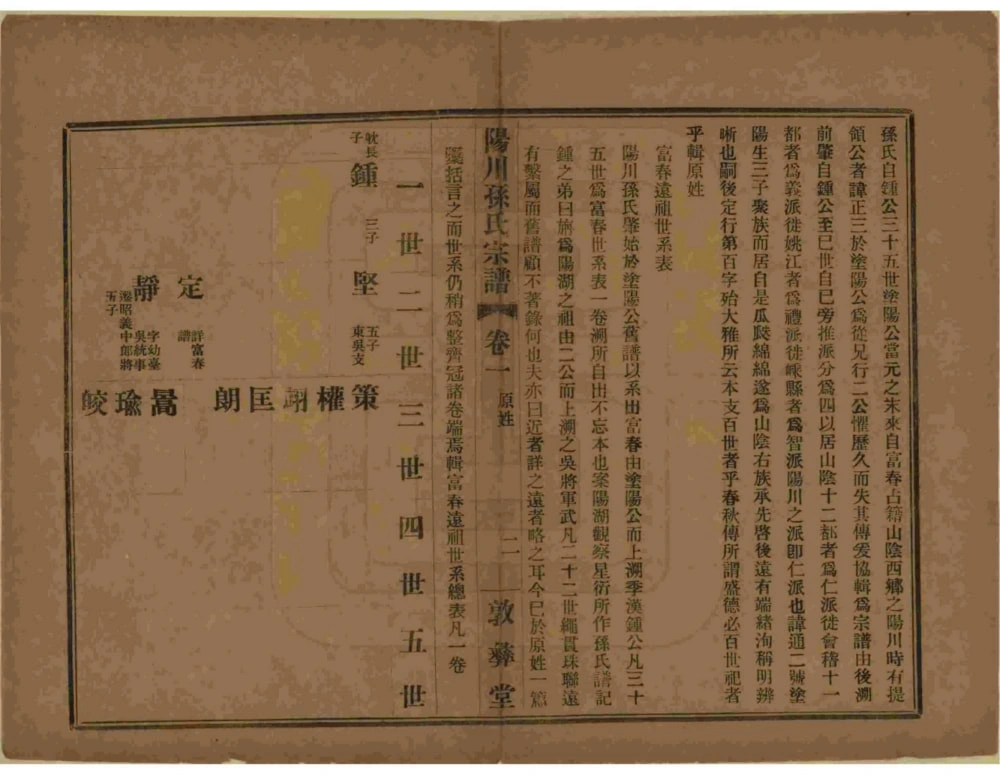 孫氏自鍾公三十五世塗陽公當元之末來自富春占籍山陰西鄉之陽川時有提
領公者諱正三於塗陽公爲從兄行二公懼歷久而失其傳爰協輯爲宗譜由後溯
前肇自鍾公至巳世自巳旁推派分爲四以居山陰十二都者爲仁派徙會稽十一
都者爲義派徙姚江者爲禮派徙嵊縣者爲智派陽川之派卽仁派也諱通二號塗
陽生三子聚族而居自是瓜瓞綿綿遂爲山陰右族承先啓後遠有端緒洵稱明辨
晰也嗣後定行第百字殆大雅所云本支百世者乎春秋傳所謂盛德必百世祀者
乎輯原姓
富春遠祖世系表
陽川孫氏肇始於塗陽公舊譜以系出富春由塗陽公而上溯季漢鍾公凡三十
五世爲富春世系表一卷溯所自出不忘本也案陽湖觀察星衍所作孫氏譜記
鍾之弟曰旃爲陽湖之祖由二公而上溯之吳將軍武凡二十二世繩貫珠聯遠
有繫屬而舊譜顧不著錄何也夫亦曰近者詳之遠者略之耳今巳於原姓一篇
陽川孫氏宗譜 卷一 原姓 二 敦彝堂
檃括言之而世系仍稍爲整齊冠諸卷端焉輯富春遠祖世系總表凡一卷
一世二世三世四世五世
耽長子 鍾 三子 堅 五子東吳支 策
權
翊
匡
朗
定 詳富春譜
靜 字幼臺吳統事遷昭義中郎將五子 暠
瑜
皎